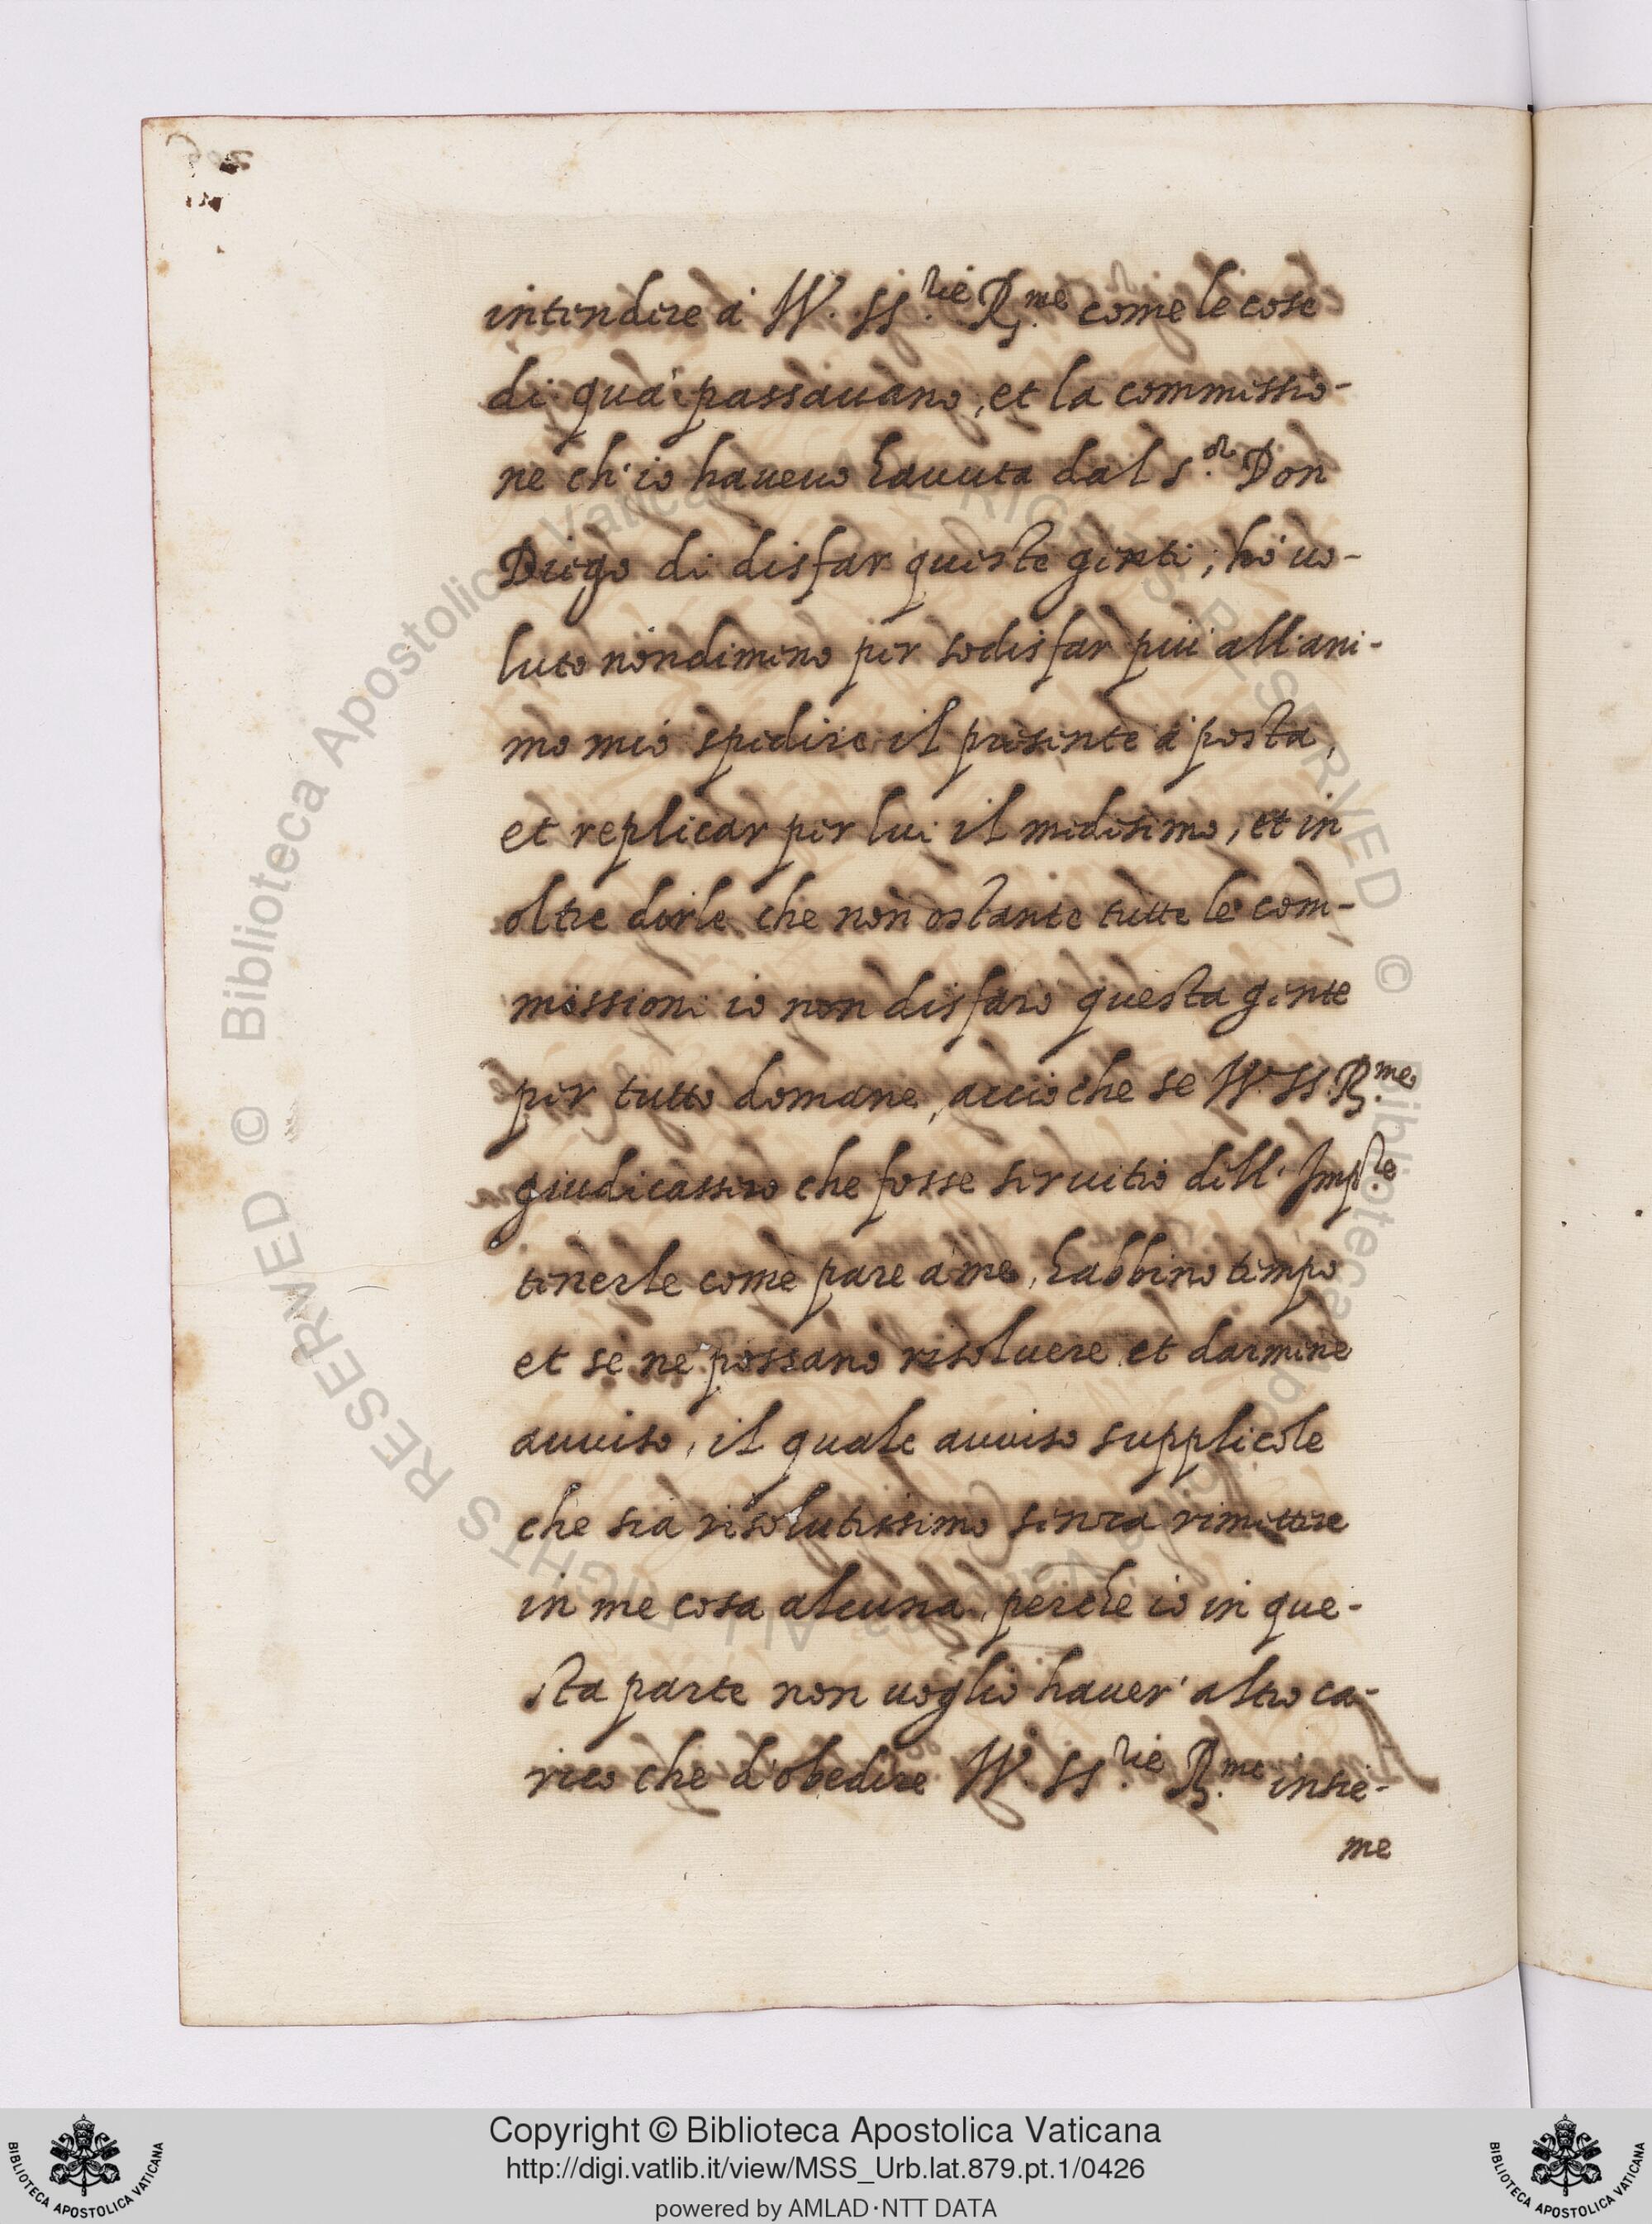 intendere à VV. SS.rie R.me come le cose
di quà passauano, et la commissio-
ne ch'io haueuo hauuta dal S.or Don
Diego di disfar queste genti; hò uo-
luto nondimeno per sodisfar più all'ani-
mo mio spedire il presente à posta,
et replicar per lui il medesimo, et in
oltre dirle che non ostante tutte le com-
missioni io non disfarò questa gente
per tutto domane, accioche se VV. SS. R.me
giudicassero che fosse seruitio dell'Imp.le
tenerle come pare à me, habbino tempo
et se ne possano risoluere et darmene
auuiso, il quale auuiso supplicole
che sia risolutissimo senza rimettere
in me cosa alcuna, perche io in que-
sta parte non uoglio hauer' altro ca-
rico che d'obedire VV. SS.rie R.me insie-
me
Copyright © Biblioteca Apostolica Vaticana
http://digi.vatlib.it/view/MSS_Urb.lat.879.pt.1/0426
powered by AMLAD·NTT DATA